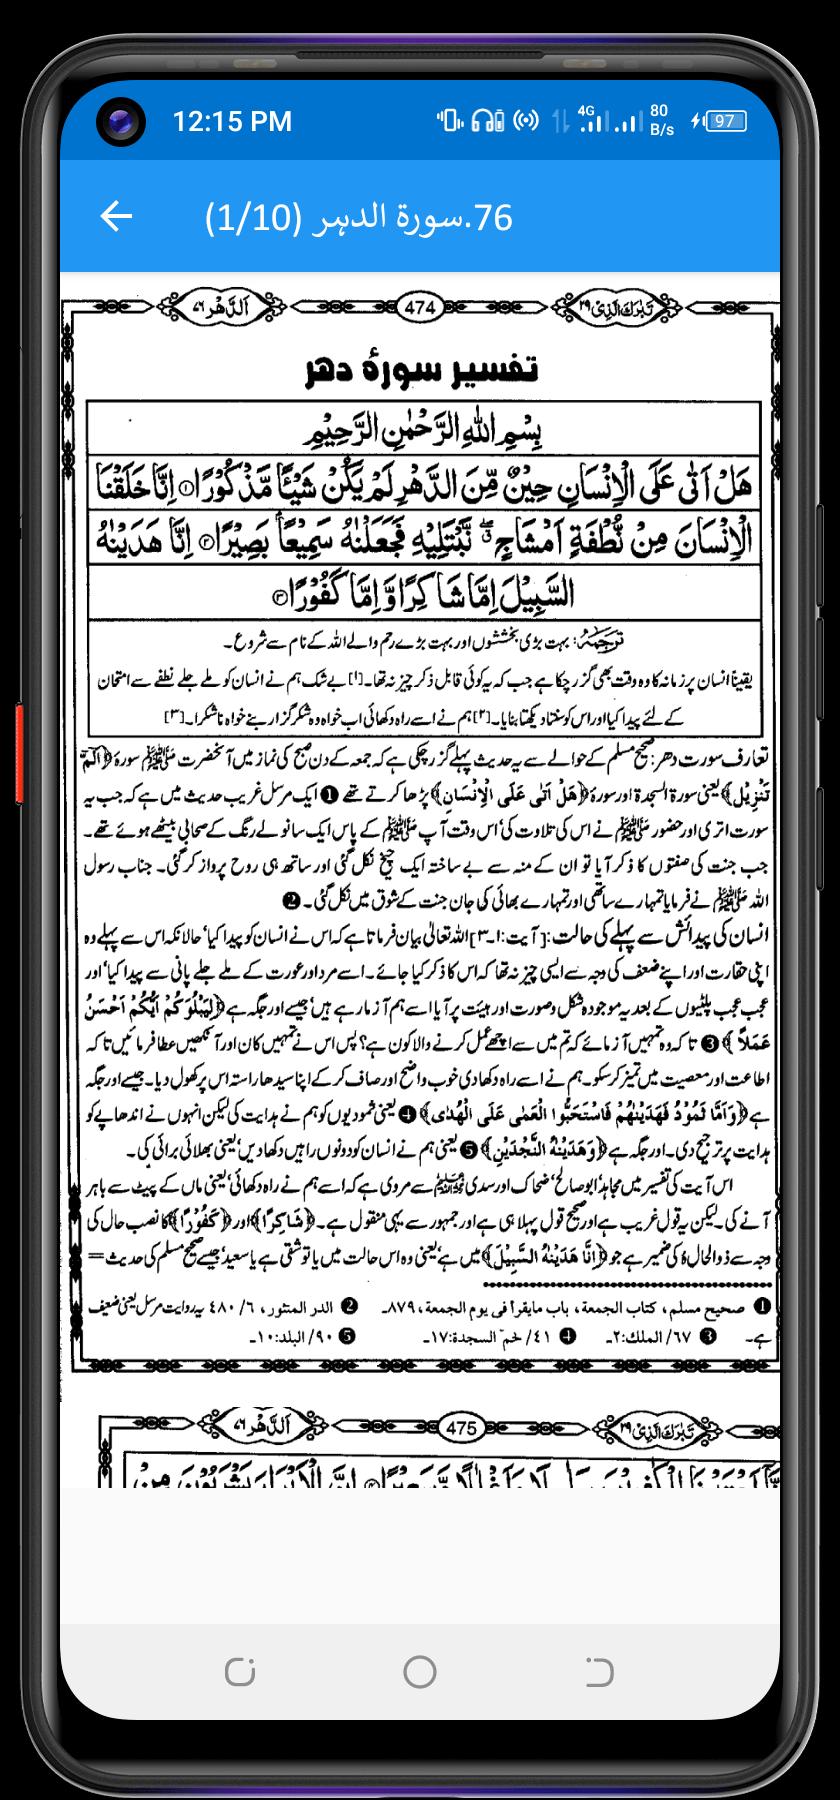 12:15 PM
4G
80
B/s
97
76.سورة الدہر (1/10)
تَبٰرَكَ الَّذِیْ ۲۹
474
اَلدَّهْر ۷۶
تفسیر سورۂ دهر
بِسْمِ اللّٰهِ الرَّحْمٰنِ الرَّحِیْمِ
هَلْ اَتٰى عَلَى الْاِنْسَانِ حِیْنٌ مِّنَ الدَّهْرِ لَمْ یَكُنْ شَیْـًٔا مَّذْكُوْرًا ۝۱ اِنَّا خَلَقْنَا
الْاِنْسَانَ مِنْ نُّطْفَةٍ اَمْشَاجٍ ۖۗ نَّبْتَلِیْهِ فَجَعَلْنٰهُ سَمِیْعًۢا بَصِیْرًا ۝۲ اِنَّا هَدَیْنٰهُ
السَّبِیْلَ اِمَّا شَاكِرًا وَّ اِمَّا كَفُوْرًا ۝۳
ترجمہ: بہت بڑی بخششوں اور بہت بڑے رحم والے اللہ کے نام سے شروع۔
یقیناً انسان پر زمانہ کا وہ وقت بھی گزر چکا ہے جب کہ یہ کوئی قابل ذکر چیز نہ تھا۔[۱] بے شک ہم نے انسان کو ملے جلے نطفے سے امتحان
کے لئے پیدا کیا اور اس کو سنتا دیکھتا بنایا۔[۲] ہم نے اسے راہ دکھائی اب خواہ وہ شکر گزار بنے خواہ ناشکرا۔[۳]
تعارف سورت دھر: صحیح مسلم کے حوالے سے یہ حدیث پہلے گزر چکی ہے کہ جمعہ کے دن صبح کی نماز میں آنحضرت ﷺ سورۂ ﴿الٓمّٓ
تَنْزِیْل﴾ یعنی سورۃ السجدۃ اور سورۂ ﴿هَلْ اَتٰى عَلَى الْاِنْسَانِ﴾ پڑھا کرتے تھے ❶ ایک مرسل غریب حدیث میں ہے کہ جب یہ
سورت اتری اور حضور ﷺ نے اس کی تلاوت کی اس وقت آپ ﷺ کے پاس ایک سانولے رنگ کے صحابی بیٹھے ہوئے تھے۔
جب جنت کی صفتوں کا ذکر آیا تو ان کے منہ سے بے ساختہ ایک چیخ نکل گئی اور ساتھ ہی روح پرواز کر گئی۔ جناب رسول
اللہ ﷺ نے فرمایا تمہارے ساتھی اور تمہارے بھائی کی جان جنت کے شوق میں نکل گئی۔ ❷
انسان کی پیدائش سے پہلے کی حالت: [آیت:۱۔۳] اللہ تعالیٰ بیان فرماتا ہے کہ اس نے انسان کو پیدا کیا‘ حالانکہ اس سے پہلے وہ
اپنی حقارت اور اپنے ضعف کی وجہ سے ایسی چیز نہ تھا کہ اس کا ذکر کیا جائے۔ اسے مرد اور عورت کے ملے جلے پانی سے پیدا کیا‘ اور
عجب عجب پلٹیوں کے بعد یہ موجودہ شکل وصورت اور ہیئت پر آیا اسے ہم آزما رہے ہیں‘ جیسے اور جگہ ہے ﴿لِیَبْلُوَكُمْ اَیُّكُمْ اَحْسَنُ
عَمَلًا﴾ ❸ تا کہ وہ تمہیں آزمائے کہ تم میں سے اچھے عمل کرنے والا کون ہے؟ پس اس نے تمہیں کان اور آنکھیں عطا فرمائیں تا کہ
اطاعت اور معصیت میں تمیز کر سکو۔ ہم نے اسے راہ دکھا دی خوب واضح اور صاف کر کے اپنا سیدھا راستہ اس پر کھول دیا۔ جیسے اور جگہ
ہے ﴿وَاَمَّا ثَمُوْدُ فَهَدَیْنٰهُمْ فَاسْتَحَبُّوا الْعَمٰى عَلَى الْهُدٰى﴾ ❹ یعنی ثمودیوں کو ہم نے ہدایت کی لیکن انہوں نے اندھاپے کو
ہدایت پر ترجیح دی۔ اور جگہ ہے ﴿وَهَدَیْنٰهُ النَّجْدَیْنِ﴾ ❺ یعنی ہم نے انسان کو دونوں راہیں دکھا دیں‘ یعنی بھلائی برائی کی۔
اس آیت کی تفسیر میں مجاہد‘ ابو صالح‘ ضحاک اور سدی سے مروی ہے کہ اسے ہم نے راہ دکھائی‘ یعنی ماں کے پیٹ سے باہر
آنے کی۔ لیکن یہ قول غریب ہے اور صحیح قول پہلا ہی ہے اور جمہور سے یہی منقول ہے۔ ﴿شَاكِرًا﴾ اور ﴿كَفُوْرًا﴾ کا نصب حال کی
وجہ سے ذوالحال ہٗ کی ضمیر ہے جو ﴿اِنَّا هَدَیْنٰهُ السَّبِیْلَ﴾ میں ہے‘ یعنی وہ اس حالت میں یا تو شقی ہے یا سعید‘ جیسے صحیح مسلم کی حدیث =
❶ صحیح مسلم، کتاب الجمعة، باب مایقرأ فی یوم الجمعة، ۸۷۹۔ ❷ الدر المنثور، ۶/ ۴۸۰ یہ روایت مرسل یعنی ضعیف
ہے۔ ❸ ۶۷/ الملك:۲۔ ❹ ۴۱/ حٰمٓ السجدة:۱۷۔ ❺ ۹۰/ البلد:۱۰۔
تَبٰرَكَ الَّذِیْ ۲۹
475
اَلدَّهْر ۷۶